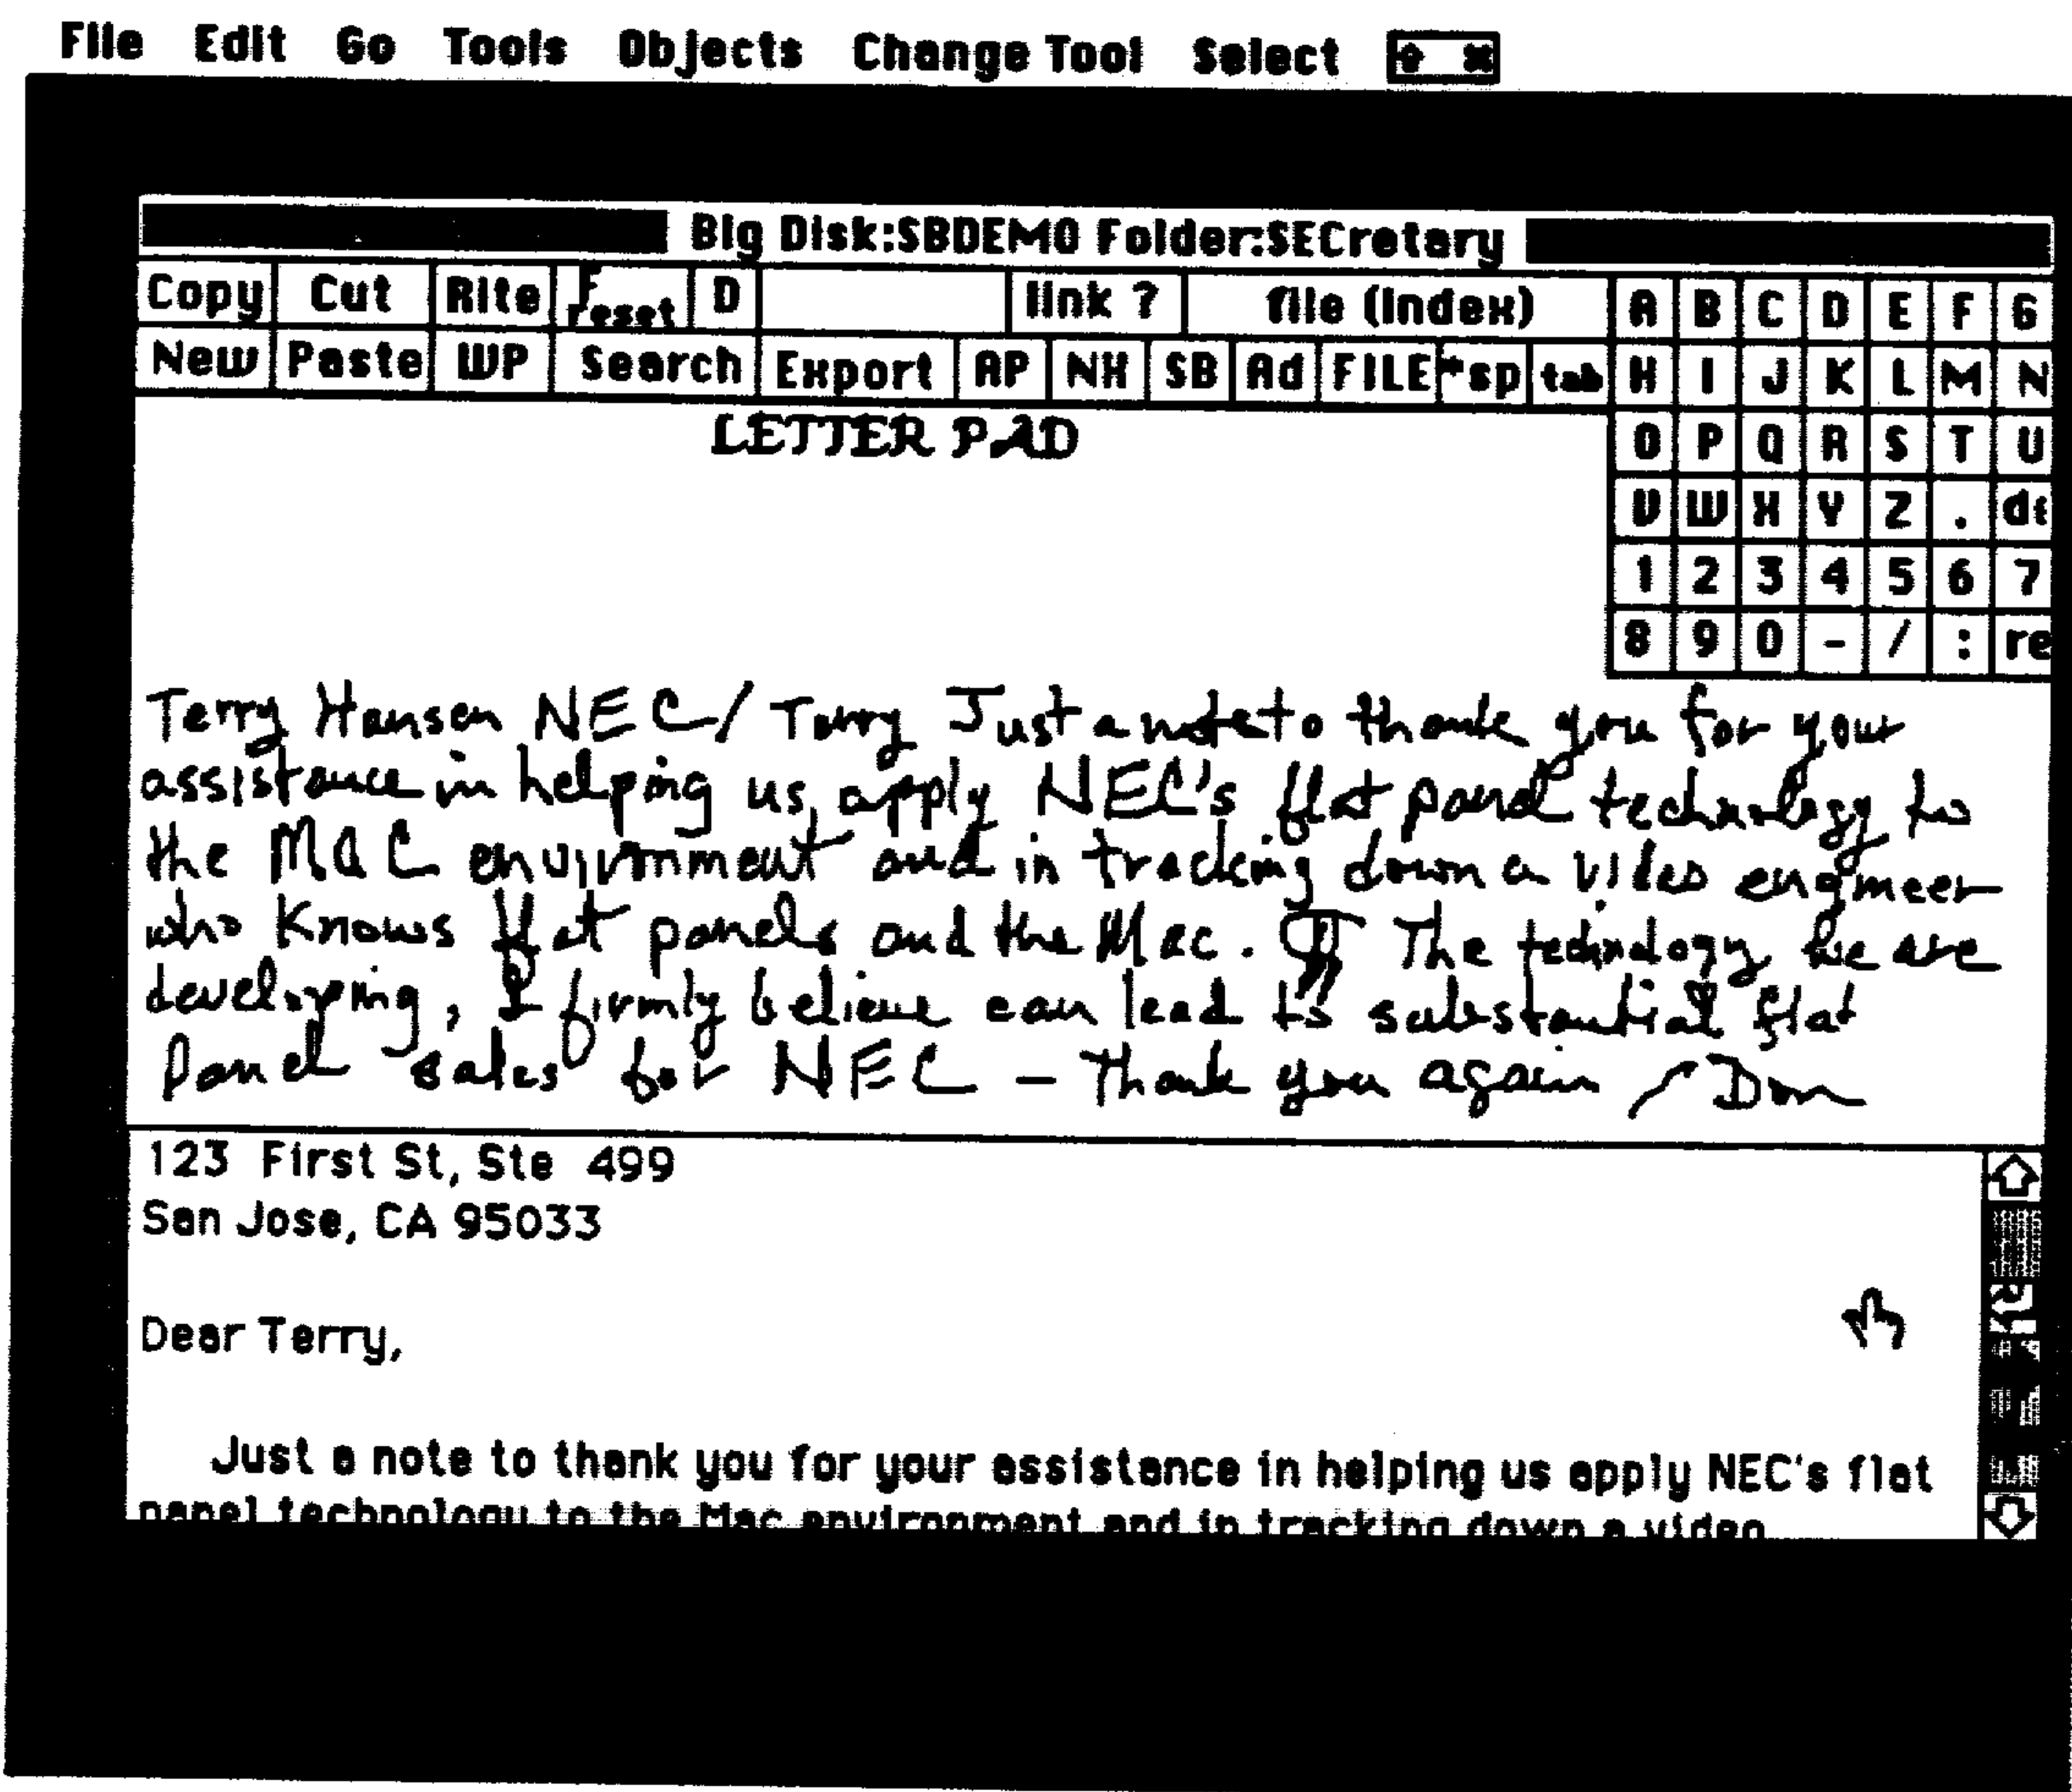 File Edit Go Tools Objects Change Tool Select
Big Disk:SBDEMO Folder:SECretary
Copy Cut Rite F reset D link ? file (index) A B C D E F G
New Paste WP Search Export AP NH SB Ad FILE *sp tab H I J K L M N
LETTER PAD O P Q R S T U
V W X Y Z . dt
1 2 3 4 5 6 7
8 9 0 - / : re
Terry Hansen NEC/ Terry Just a note to thank you for your
assistance in helping us apply NEC's flat panel technology to
the MAC environment and in tracking down a video engineer
who knows flat panels and the Mac. ¶ The technology we are
developing, I firmly believe can lead to substantial flat
panel sales for NEC - Thank you again / Don
123 First St, Ste 499
San Jose, CA 95033
Dear Terry,
Just a note to thank you for your assistance in helping us apply NEC's flat
panel technology to the Mac environment and in tracking down a video